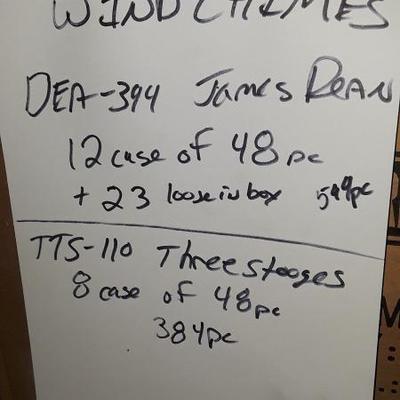 WIND CHIMES
DEA-394 James Dean
12 case of 48 pc
+ 23 loose in box 599pc
TTS-110 Three stooges
8 case of 48pc
384pc